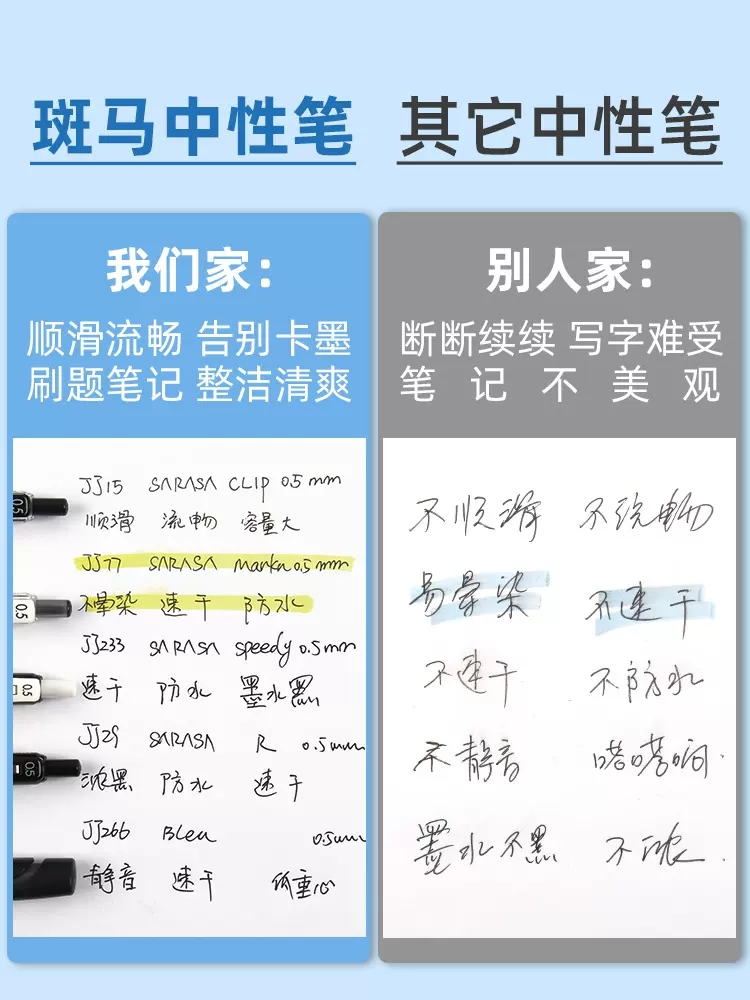 斑马中性笔
其它中性笔
我们家：
顺滑流畅 告别卡墨
刷题笔记 整洁清爽
别人家：
断断续续 写字难受
笔记不美观
JJ15 SARASA CLIP 0.5mm
顺滑 流畅 容量大
JJ77 SARASA markn 0.5mm
不晕染 速干 防水
JJ233 SARASA speedy 0.5mm
速干 防水 墨水黑
JJ29 SARASA R 0.5mm
浓黑 防水 速干
JJ266 BLen 0.5mm
静音 速干 低重心
0.5
0.5
0.5
0.5
不顺滑 不流畅
易晕染 不速干
不速干 不防水
不静音 嗒嗒响.
墨水不黑 不浓.